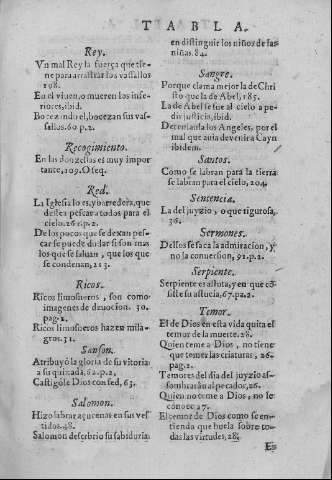 TABLA.
Rey.
Vn mal Rey la fuerça que tie-
ne para arrastrar los vassallos
108.
En el viuen, o mueren los infe-
riores, ibid.
Bostezando el, bocezan sus vas-
sallos. 60. p. 2.
Recogimiento.
En las donzellas es muy impor
tante, 109. O seq.
Red.
La Iglesia lo es, y barredera, que
desea pescar a todos para el
cielo. 26. p. 2.
De los pocos que se dexan pes-
car se puede dudar si son mas
los que se saluan, que los que
se condenan, 213.
Ricos.
Ricos limosneros, son como
imagenes de deuocion. 30.
pag. 2.
Ricos limosneros hazen mila-
gros. 31.
Sanson.
Atribuyó la gloria de su vitoria
a su quixada, 62. p. 2.
Castigóle Dios con sed, 63.
Salomon.
Hizo labrar açucenas en sus ves
tidos. 48.
Salomon descubrio su sabiduria
en distinguir los niños de las
niñas. 84.
Sangre.
Porque clama mejor la de Chri
sto que la de Abel, 185.
La de Abel se fue al cielo a pe-
dir justicia, ibid.
Detenianla los Angeles, por el
mal que auia de venir a Cayn
ibidem.
Santos.
Como se labran para la tierra
se labran para el cielo, 204.
Sentencia.
La del juyzio, o que rigurosa,
36.
Sermones.
Dellos se saca la admiracion, y
no la conuersion, 92. p. 2.
Serpiente.
Serpiente es astuta, y en que cō
siste su astucia, 67. pa. 2.
Temor.
El de Dios en esta vida quita el
temor de la muerte. 28.
Quien teme a Dios, no tiene
que temer las criaturas, 26.
pag. 2.
Temores del dia del juyzio as-
sombrarán al pecador, 26.
Quien no teme a Dios, no se
conoce 27.
El temor de Dios como se en-
tienda que huela sobre to-
das las virtudes, 28.